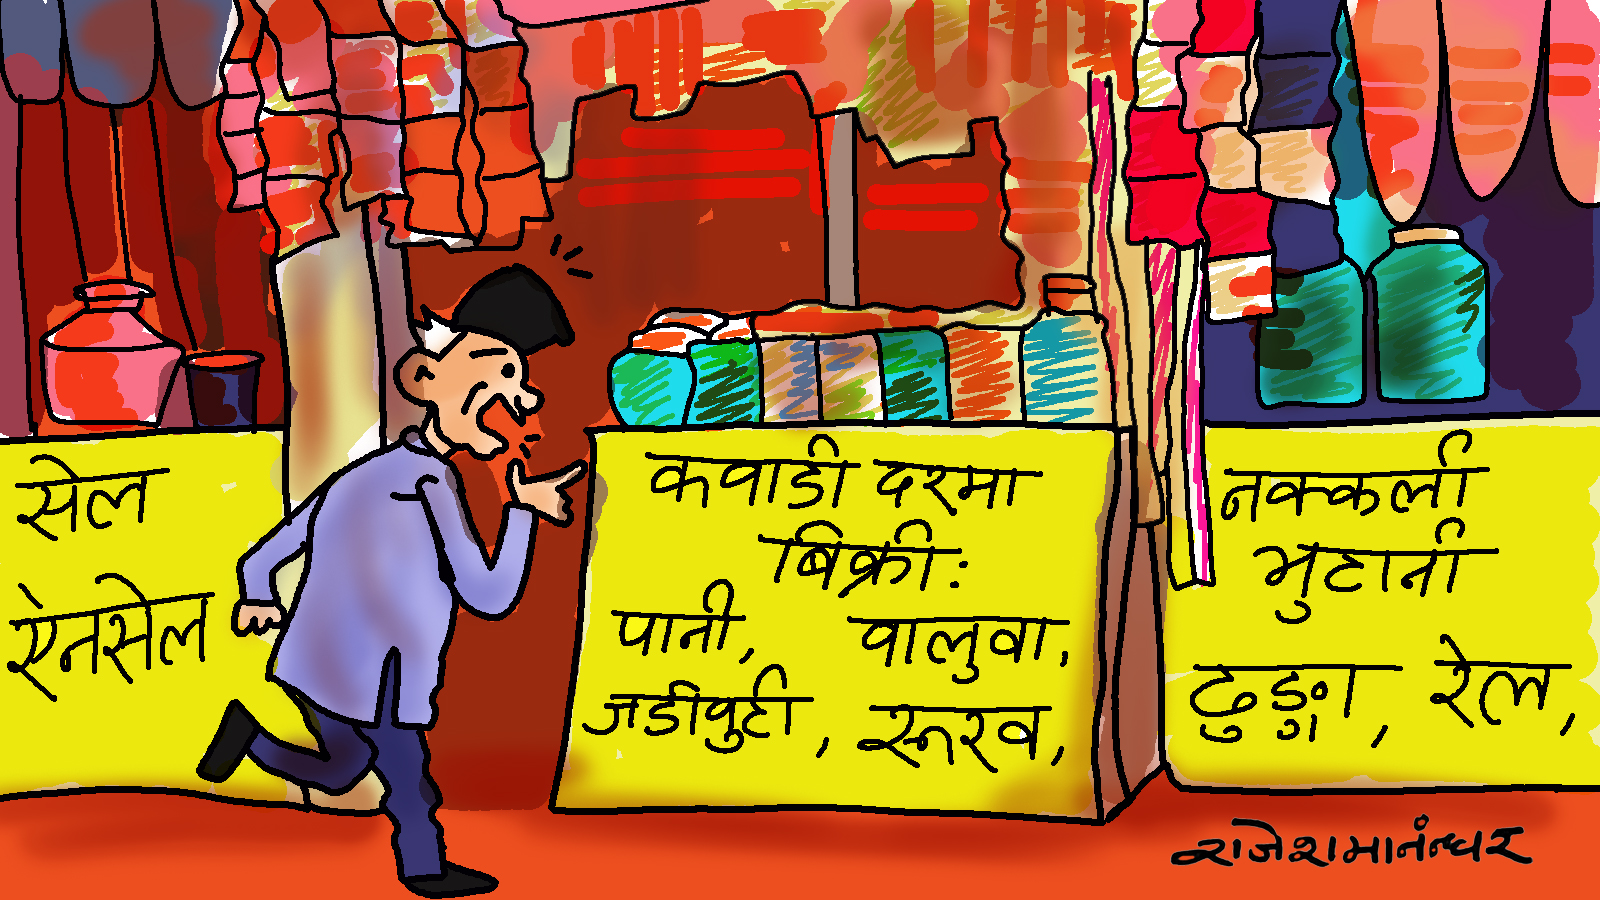 सेल
एनसेल
कवाडी दरमा
बिक्री:
पानी, वालुवा,
जडीवुटी, रूख,
नक्कली
भुटानी
ढुङ्गा, रेल,
राजेशमानन्धर